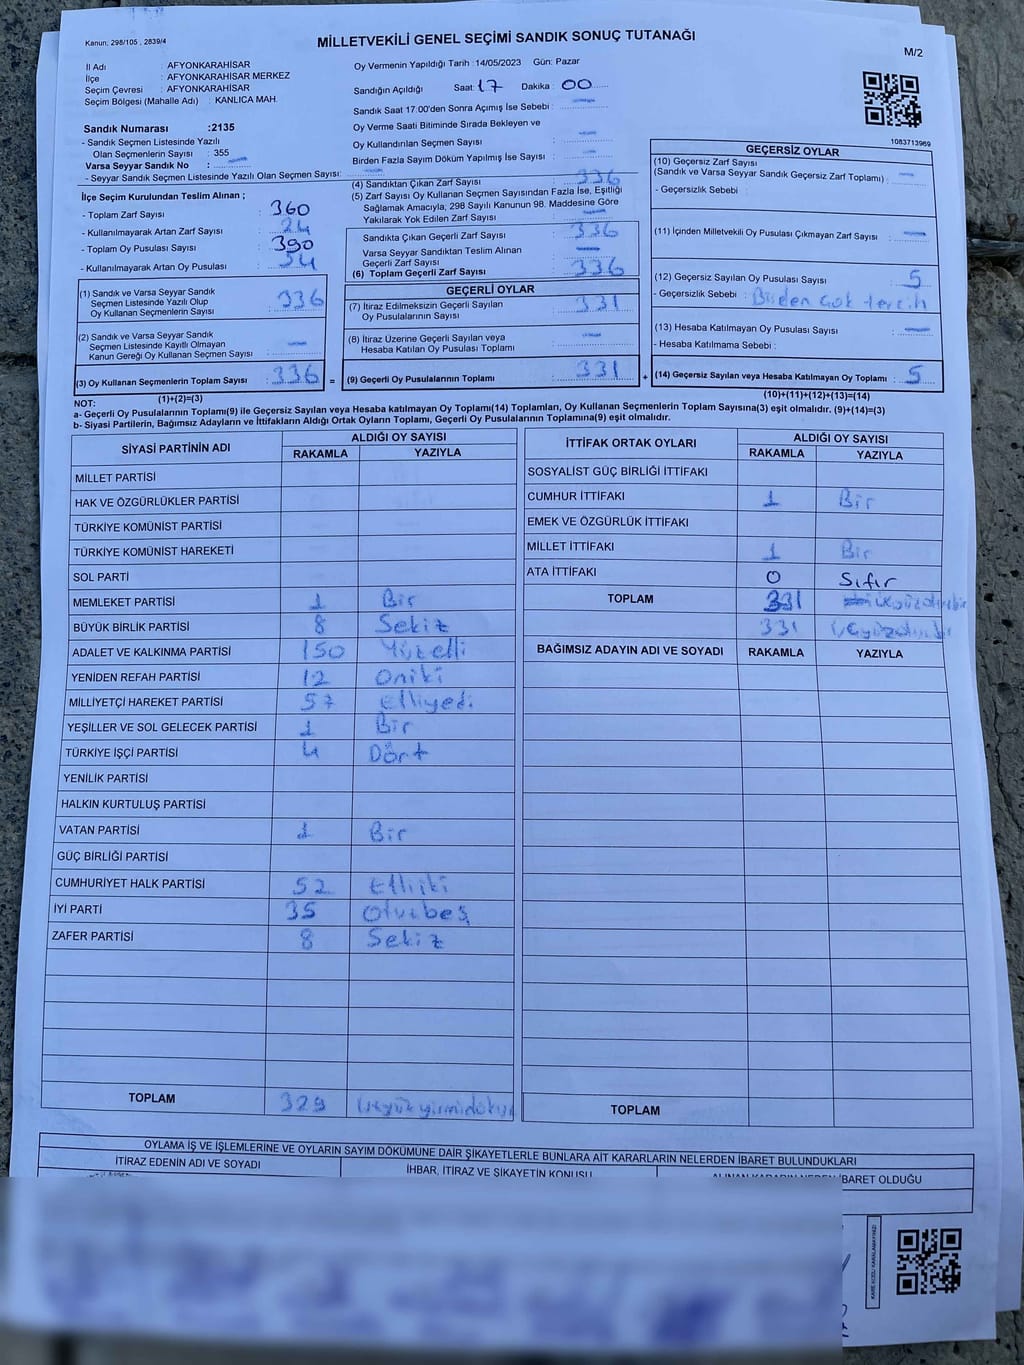 Kanun; 298/105 , 2839/4
MİLLETVEKİLİ GENEL SEÇİMİ SANDIK SONUÇ TUTANAĞI
M/2
İl Adı : AFYONKARAHİSAR
İlçe : AFYONKARAHİSAR MERKEZ
Seçim Çevresi : AFYONKARAHİSAR
Seçim Bölgesi (Mahalle Adı) : KANLICA MAH.
Oy Vermenin Yapıldığı Tarih : 14/05/2023 Gün: Pazar
Sandığın Açıldığı Saat: 17 Dakika : 00
Sandık Saat 17.00'den Sonra Açımış İse Sebebi : —
Oy Verme Saati Bitiminde Sırada Bekleyen ve
Oy Kullandırılan Seçmen Sayısı : —
Birden Fazla Sayım Döküm Yapılmış İse Sayısı : —
Sandık Numarası :2135
- Sandık Seçmen Listesinde Yazılı
Olan Seçmenlerin Sayısı : 355
Varsa Seyyar Sandık No : —
- Seyyar Sandık Seçmen Listesinde Yazılı Olan Seçmen Sayısı: —
İlçe Seçim Kurulundan Teslim Alınan ;
- Toplam Zarf Sayısı : 360
- Kullanılmayarak Artan Zarf Sayısı : 24
- Toplam Oy Pusulası Sayısı : 390
- Kullanılmayarak Artan Oy Pusulası : 54
(1) Sandık ve Varsa Seyyar Sandık
Seçmen Listesinde Yazılı Olup
Oy Kullanan Seçmenlerin Sayısı : 336
(2) Sandık ve Varsa Seyyar Sandık
Seçmen Listesinde Kayıtlı Olmayan
Kanun Gereği Oy Kullanan Seçmen Sayısı : —
(3) Oy Kullanan Seçmenlerin Toplam Sayısı : 336 =
(1)+(2)=(3)
(4) Sandıktan Çıkan Zarf Sayısı : 336
(5) Zarf Sayısı Oy Kullanan Seçmen Sayısından Fazla İse, Eşitliği
Sağlamak Amacıyla; 298 Sayılı Kanunun 98. Maddesine Göre
Yakılarak Yok Edilen Zarf Sayısı : —
Sandıkta Çıkan Geçerli Zarf Sayısı : 336
Varsa Seyyar Sandıktan Teslim Alınan
Geçerli Zarf Sayısı : —
(6) Toplam Geçerli Zarf Sayısı : 336
GEÇERLİ OYLAR
(7) İtiraz Edilmeksizin Geçerli Sayılan
Oy Pusulalarının Sayısı : 331
(8) İtiraz Üzerine Geçerli Sayılan veya
Hesaba Katılan Oy Pusulası Toplamı : —
(9) Geçerli Oy Pusulalarının Toplamı : 331 +
1083713969
GEÇERSİZ OYLAR
(10) Geçersiz Zarf Sayısı
(Sandık ve Varsa Seyyar Sandık Geçersiz Zarf Toplamı) : —
- Geçersizlik Sebebi :
(11) İçinden Milletvekili Oy Pusulası Çıkmayan Zarf Sayısı : —
(12) Geçersiz Sayılan Oy Pusulası Sayısı : 5
- Geçersizlik Sebebi : Birden çok tercih
(13) Hesaba Katılmayan Oy Pusulası Sayısı : —
- Hesaba Katılmama Sebebi :
(14) Geçersiz Sayılan veya Hesaba Katılmayan Oy Toplamı : 5
(10)+(11)+(12)+(13)=(14)
NOT:
a- Geçerli Oy Pusulalarının Toplamı(9) ile Geçersiz Sayılan veya Hesaba katılmayan Oy Toplamı(14) Toplamları, Oy Kullanan Seçmenlerin Toplam Sayısına(3) eşit olmalıdır. (9)+(14)=(3)
b- Siyasi Partilerin, Bağımsız Adayların ve İttifakların Aldığı Ortak Oyların Toplamı, Geçerli Oy Pusulalarının Toplamına(9) eşit olmalıdır.
SİYASİ PARTİNİN ADI ALDIĞI OY SAYISI
RAKAMLA YAZIYLA
MİLLET PARTİSİ
HAK VE ÖZGÜRLÜKLER PARTİSİ
TÜRKİYE KOMÜNİST PARTİSİ
TÜRKİYE KOMÜNİST HAREKETİ
SOL PARTİ
MEMLEKET PARTİSİ 1 Bir
BÜYÜK BİRLİK PARTİSİ 8 Sekiz
ADALET VE KALKINMA PARTİSİ 150 Yüzelli
YENİDEN REFAH PARTİSİ 12 Oniki
MİLLİYETÇİ HAREKET PARTİSİ 57 Elliyedi
YEŞİLLER VE SOL GELECEK PARTİSİ 1 Bir
TÜRKİYE İŞÇİ PARTİSİ 4 Dört
YENİLİK PARTİSİ
HALKIN KURTULUŞ PARTİSİ
VATAN PARTİSİ 1 Bir
GÜÇ BİRLİĞİ PARTİSİ
CUMHURİYET HALK PARTİSİ 52 Elliiki
İYİ PARTİ 35 Otuzbeş
ZAFER PARTİSİ 8 Sekiz
TOPLAM 329 Üçyüzyirmidokuz
İTTİFAK ORTAK OYLARI ALDIĞI OY SAYISI
RAKAMLA YAZIYLA
SOSYALİST GÜÇ BİRLİĞİ İTTİFAKI
CUMHUR İTTİFAKI 1 Bir
EMEK VE ÖZGÜRLÜK İTTİFAKI
MİLLET İTTİFAKI 1 Bir
ATA İTTİFAKI 0 Sıfır
TOPLAM 331
331 Üçyüzotuzbir
BAĞIMSIZ ADAYIN ADI VE SOYADI RAKAMLA YAZIYLA
TOPLAM
OYLAMA İŞ VE İŞLEMLERİNE VE OYLARIN SAYIM DÖKÜMÜNE DAİR ŞİKAYETLERLE BUNLARA AİT KARARLARIN NELERDEN İBARET BULUNDUKLARI
İTİRAZ EDENİN ADI VE SOYADI İHBAR, İTİRAZ VE ŞİKAYETİN KONUSU ALINAN KARARIN NEDEN İBARET OLDUĞU